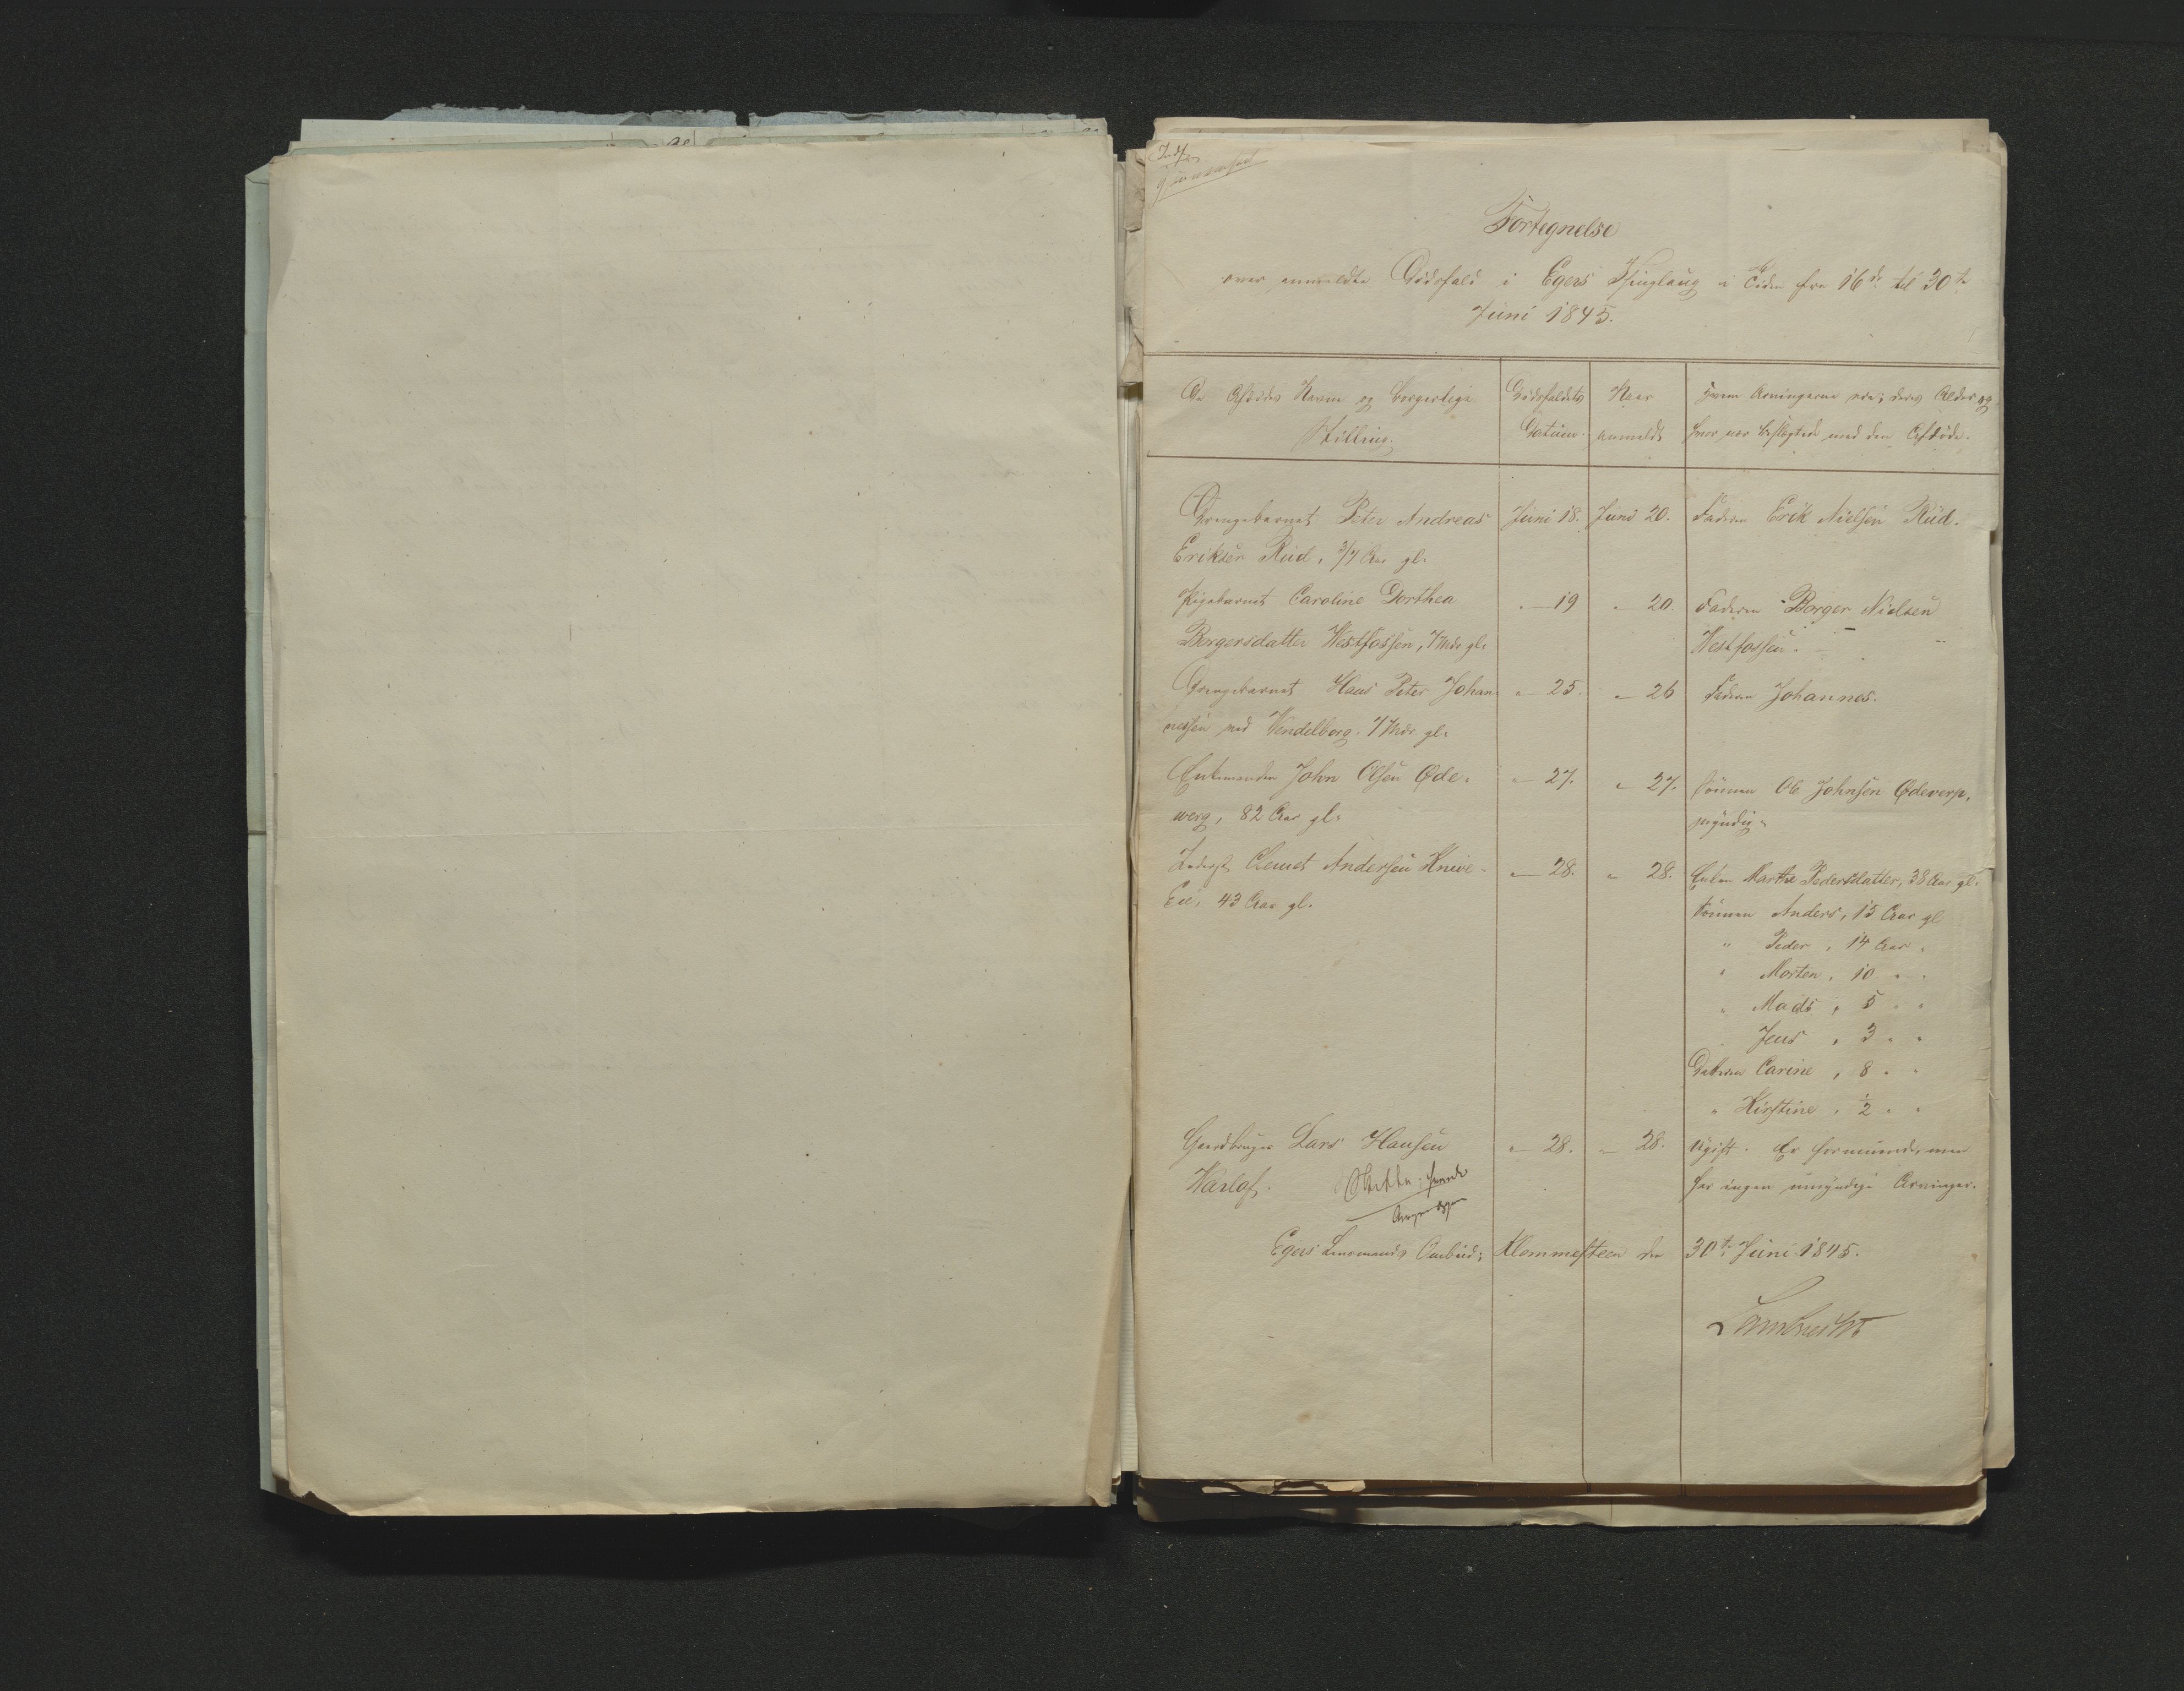 Indf.
Gjennemseet
Fortegnelse
over anmeldte Dödsfald i Egers Thinglaug i Tiden fra 16de til 30te
Juni 1845.
De Afdödes Navne og borgerlige Stilling. Dödsfaldets Datum. Naar anmeldt Hvem Arvingerne ere; deres Alder og hvor nær beslægtede med den Afdöde.
Drengebarnet Peter Andreas Juni 18. Juni 20. Faderen Erik Nielsen Rud.
Eriksen Rud, 3/4 Aar gl.
Pigebarnet Caroline Dorthea " 19 " 20. Faderen Borger Nielsen
Borgersdatter Westfossen, 7 Mdr gl. Westfossen.
Drengebarnet Hans Peter Johan " 25. " 26 Faderen Johannes.
nessen ved Vendelborg. 7 Mdr. gl.
Enkemanden John Olsen Øde- " 27. " 27. Sönnen Ole Johnsen Ødeverp,
werg, 82 Aar gl. myndig.
Inderst Clemet Andersen Knive- " 28. " 28. Enken Marthe Pedersdatter, 38 Aar gl.
Eie, 43 Aar gl. Sönnen Anders, 15 Aar gl
" Peder, 14 Aar "
" Morten, 10 " "
" Mads, 5 " "
Jens, 3 " "
Datteren Carine, 8 " "
" Kirstine, 1/2 " "
Gaardbruger Lars Hansen " 28. " 28. Ugift. Er formuende, men
Warlof. har ingen umyndige Arvinger.
Egers Lensmands Ombud; Klommesteen den 30te Juni 1845.
Lambrecht